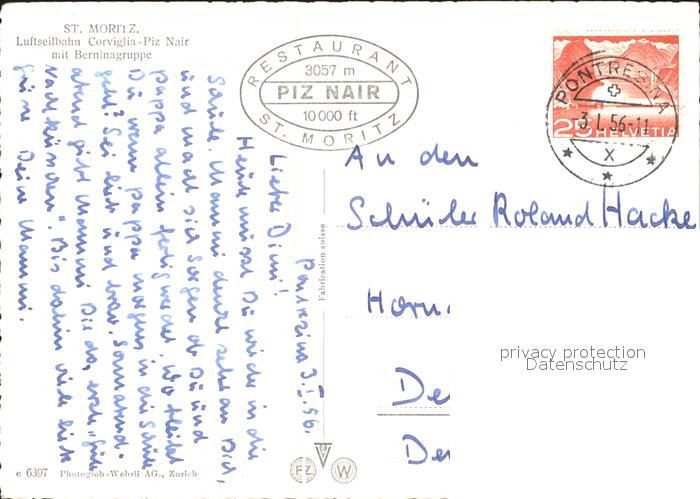 ST. MORITZ.
Luftseilbahn Corviglia-Piz Nair
mit Berninagruppe
RESTAURANT
3057 m
PIZ NAIR
10 000 ft
ST. MORITZ
PONTRESINA
3.I.56-11
X
25 HELVETIA
An den
Schüler Roland Hacke
Horn
De
De
Pontresina 3.I.56.
Lieber Dini!
Heute musst Du wieder in die
Schule. Mammi denkt sehr an Dich,
und macht sich Sorgen ob Du und
Pappa allein fertig werdet. Wo bleibst
Du wenn Pappa morgen in die Schule
geht? Sei lieb und brav. Sonnabend-
abend gibt Mammi Dir das, rechte "gute
Nacht küsschen". Bis dahin viele liebe
Grüsse Deine Mammi.
Fabrication suisse
privacy protection
Datenschutz
e 6397 Photoglob-Wehrli AG., Zurich
FZ
W